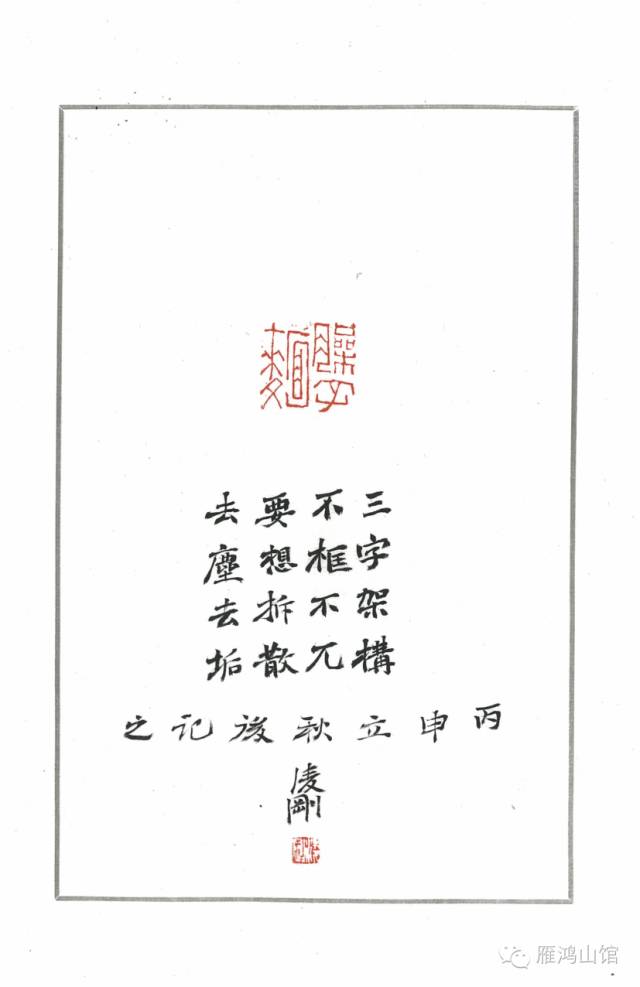 臊子麵
三字架構
不框不兀
要想拆散
去塵去垢
丙申立秋後記之
凌剛
雁鸿山馆